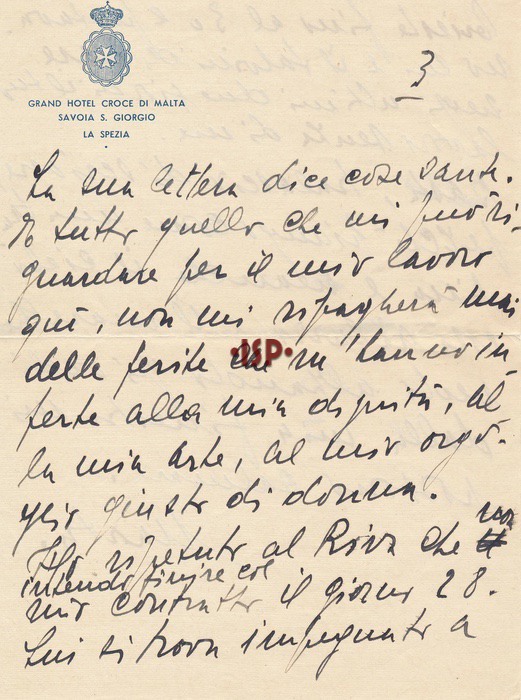 GRAND HOTEL CROCE DI MALTA
SAVOIA S. GIORGIO
LA SPEZIA
3
La sua lettera dice cose sante.
E tutto quello che mi può ri-
guardare per il mio lavoro
qui, non mi ripagherà mai
delle ferite che m'hanno in
ferte alla mia dignità, al
la mia arte, al mio orgo-
glio giusto di donna.
Ho ripetuto al Riva che non
intendo finire col
mio contratto il giorno 28.
Lui si trova impegnato a
·JSP·